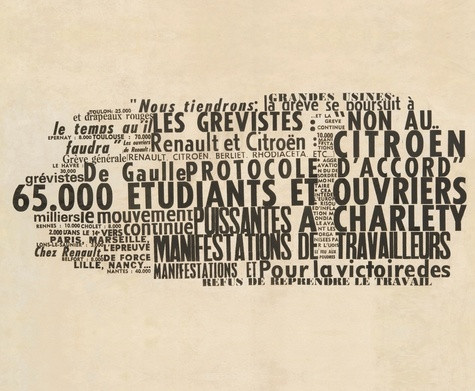 GRANDES USINES:
"Nous tiendrons: la grève se poursuit à
TOULON: 25.000
et drapeaux rouges
le temps qu'il
LES GRÉVISTES: "NON AU
ET LA GRÈVE CONTINUE
EPERNAY : 8.000 TOULOUSE : 70.000
faudra"
Les ouvriers de Renault :
Renault et Citroën :
CITROËN
Grève générale
RENAULT, CITROEN, BERLIET, RHODIACETA, ETC.
LE HAVRE : 30.000
grévistes
De Gaulle
PROTOCOLE D'ACCORD"
65.000 ETUDIANTS ET OUVRIERS
milliers
le mouvement
continue
PUISSANTES A CHARLETY
RENNES : 10.000 CHOLET : 8.000
2.000 UNS LE 1er VERS
PARIS, MARSEILLE,
LONS-LE-SAUNIER
L'EPREUVE
Chez Renault
DE FORCE
MANIFESTATIONS DE TRAVAILLEURS
BELFORT : 8.000
LILLE, NANCY...
NANTES : 40.000
MANIFESTATIONS ET Pour la victoire des
REFUS DE REPRENDRE LE TRAVAIL